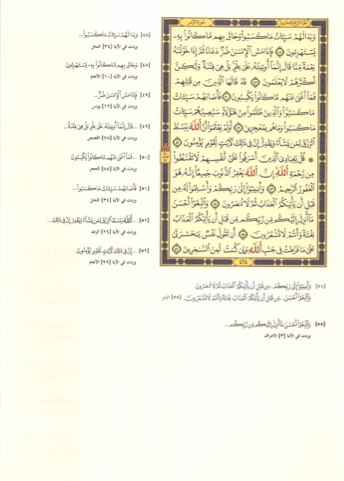 وَبَدَا لَهُمْ سَيِّئَاتُ مَا كَسَبُوا وَحَاقَ بِهِم مَّا كَانُوا بِهِ
يَسْتَهْزِءُونَ ٤٨ فَإِذَا مَسَّ الْإِنسَانَ ضُرٌّ دَعَانَا ثُمَّ إِذَا خَوَّلْنَاهُ
نِعْمَةً مِّنَّا قَالَ إِنَّمَا أُوتِيتُهُ عَلَىٰ عِلْمٍ بَلْ هِيَ فِتْنَةٌ وَلَٰكِنَّ
أَكْثَرَهُمْ لَا يَعْلَمُونَ ٤٩ قَدْ قَالَهَا الَّذِينَ مِن قَبْلِهِمْ
فَمَا أَغْنَىٰ عَنْهُم مَّا كَانُوا يَكْسِبُونَ ٥٠ فَأَصَابَهُمْ سَيِّئَاتُ
مَا كَسَبُوا وَالَّذِينَ ظَلَمُوا مِنْ هَٰؤُلَاءِ سَيُصِيبُهُمْ سَيِّئَاتُ
مَا كَسَبُوا وَمَا هُم بِمُعْجِزِينَ ٥١ أَوَلَمْ يَعْلَمُوا أَنَّ اللَّهَ يَبْسُطُ
الرِّزْقَ لِمَن يَشَاءُ وَيَقْدِرُ إِنَّ فِي ذَٰلِكَ لَآيَاتٍ لِّقَوْمٍ يُؤْمِنُونَ ٥٢
قُلْ يَا عِبَادِيَ الَّذِينَ أَسْرَفُوا عَلَىٰ أَنفُسِهِمْ لَا تَقْنَطُوا
مِن رَّحْمَةِ اللَّهِ إِنَّ اللَّهَ يَغْفِرُ الذُّنُوبَ جَمِيعًا إِنَّهُ هُوَ
الْغَفُورُ الرَّحِيمُ ٥٣ وَأَنِيبُوا إِلَىٰ رَبِّكُمْ وَأَسْلِمُوا لَهُ مِن
قَبْلِ أَن يَأْتِيَكُمُ الْعَذَابُ ثُمَّ لَا تُنصَرُونَ ٥٤ وَاتَّبِعُوا أَحْسَنَ
مَا أُنزِلَ إِلَيْكُم مِّن رَّبِّكُم مِّن قَبْلِ أَن يَأْتِيَكُمُ الْعَذَابُ
بَغْتَةً وَأَنتُمْ لَا تَشْعُرُونَ ٥٥ أَن تَقُولَ نَفْسٌ يَا حَسْرَتَىٰ
عَلَىٰ مَا فَرَّطتُ فِي جَنبِ اللَّهِ وَإِن كُنتُ لَمِنَ السَّاخِرِينَ ٥٦
٤٦٤
[٤٨] وَبَدَا لَهُمْ سَيِّئَاتُ مَا كَسَبُوا...
وردت في الآية [٣٤] النحل
[٤٨] وَحَاقَ بِهِم مَّا كَانُوا بِهِ يَسْتَهْزِءُونَ
وردت في الآية [١٠] الأنعام
[٤٩] فَإِذَا مَسَّ الْإِنسَانَ ضُرٌّ...
وردت في الآية [١٢] يونس
[٤٩] ...قَالَ إِنَّمَا أُوتِيتُهُ عَلَىٰ عِلْمٍ بَلْ هِيَ فِتْنَةٌ...
وردت في الآية [٧٨] القصص
[٥٠] ...فَمَا أَغْنَىٰ عَنْهُم مَّا كَانُوا يَكْسِبُونَ
وردت في الآية [٨٤] الحجر
[٥١] فَأَصَابَهُمْ سَيِّئَاتُ مَا كَسَبُوا...
وردت في الآية [٣٤] النحل
[٥٢] ...اللَّهَ يَبْسُطُ الرِّزْقَ لِمَن يَشَاءُ وَيَقْدِرُ إِنَّ فِي ذَٰلِكَ...
وردت في الآية [٢٦] الرعد
[٥٢] ...إِنَّ فِي ذَٰلِكَ لَآيَاتٍ لِّقَوْمٍ يُؤْمِنُونَ
وردت في الآية [٩٩] الأنعام
[٥٤] وَأَنِيبُوا إِلَىٰ رَبِّكُمْ... مِن قَبْلِ أَن يَأْتِيَكُمُ الْعَذَابُ ثُمَّ لَا تُنصَرُونَ
وَاتَّبِعُوا أَحْسَنَ... مِّن قَبْلِ أَن يَأْتِيَكُمُ الْعَذَابُ بَغْتَةً وَأَنتُمْ لَا تَشْعُرُونَ [٥٥] الزمر
[٥٥] وَاتَّبِعُوا أَحْسَنَ مَا أُنزِلَ إِلَيْكُم مِّن رَّبِّكُم...
وردت في الآية [٣] الأعراف